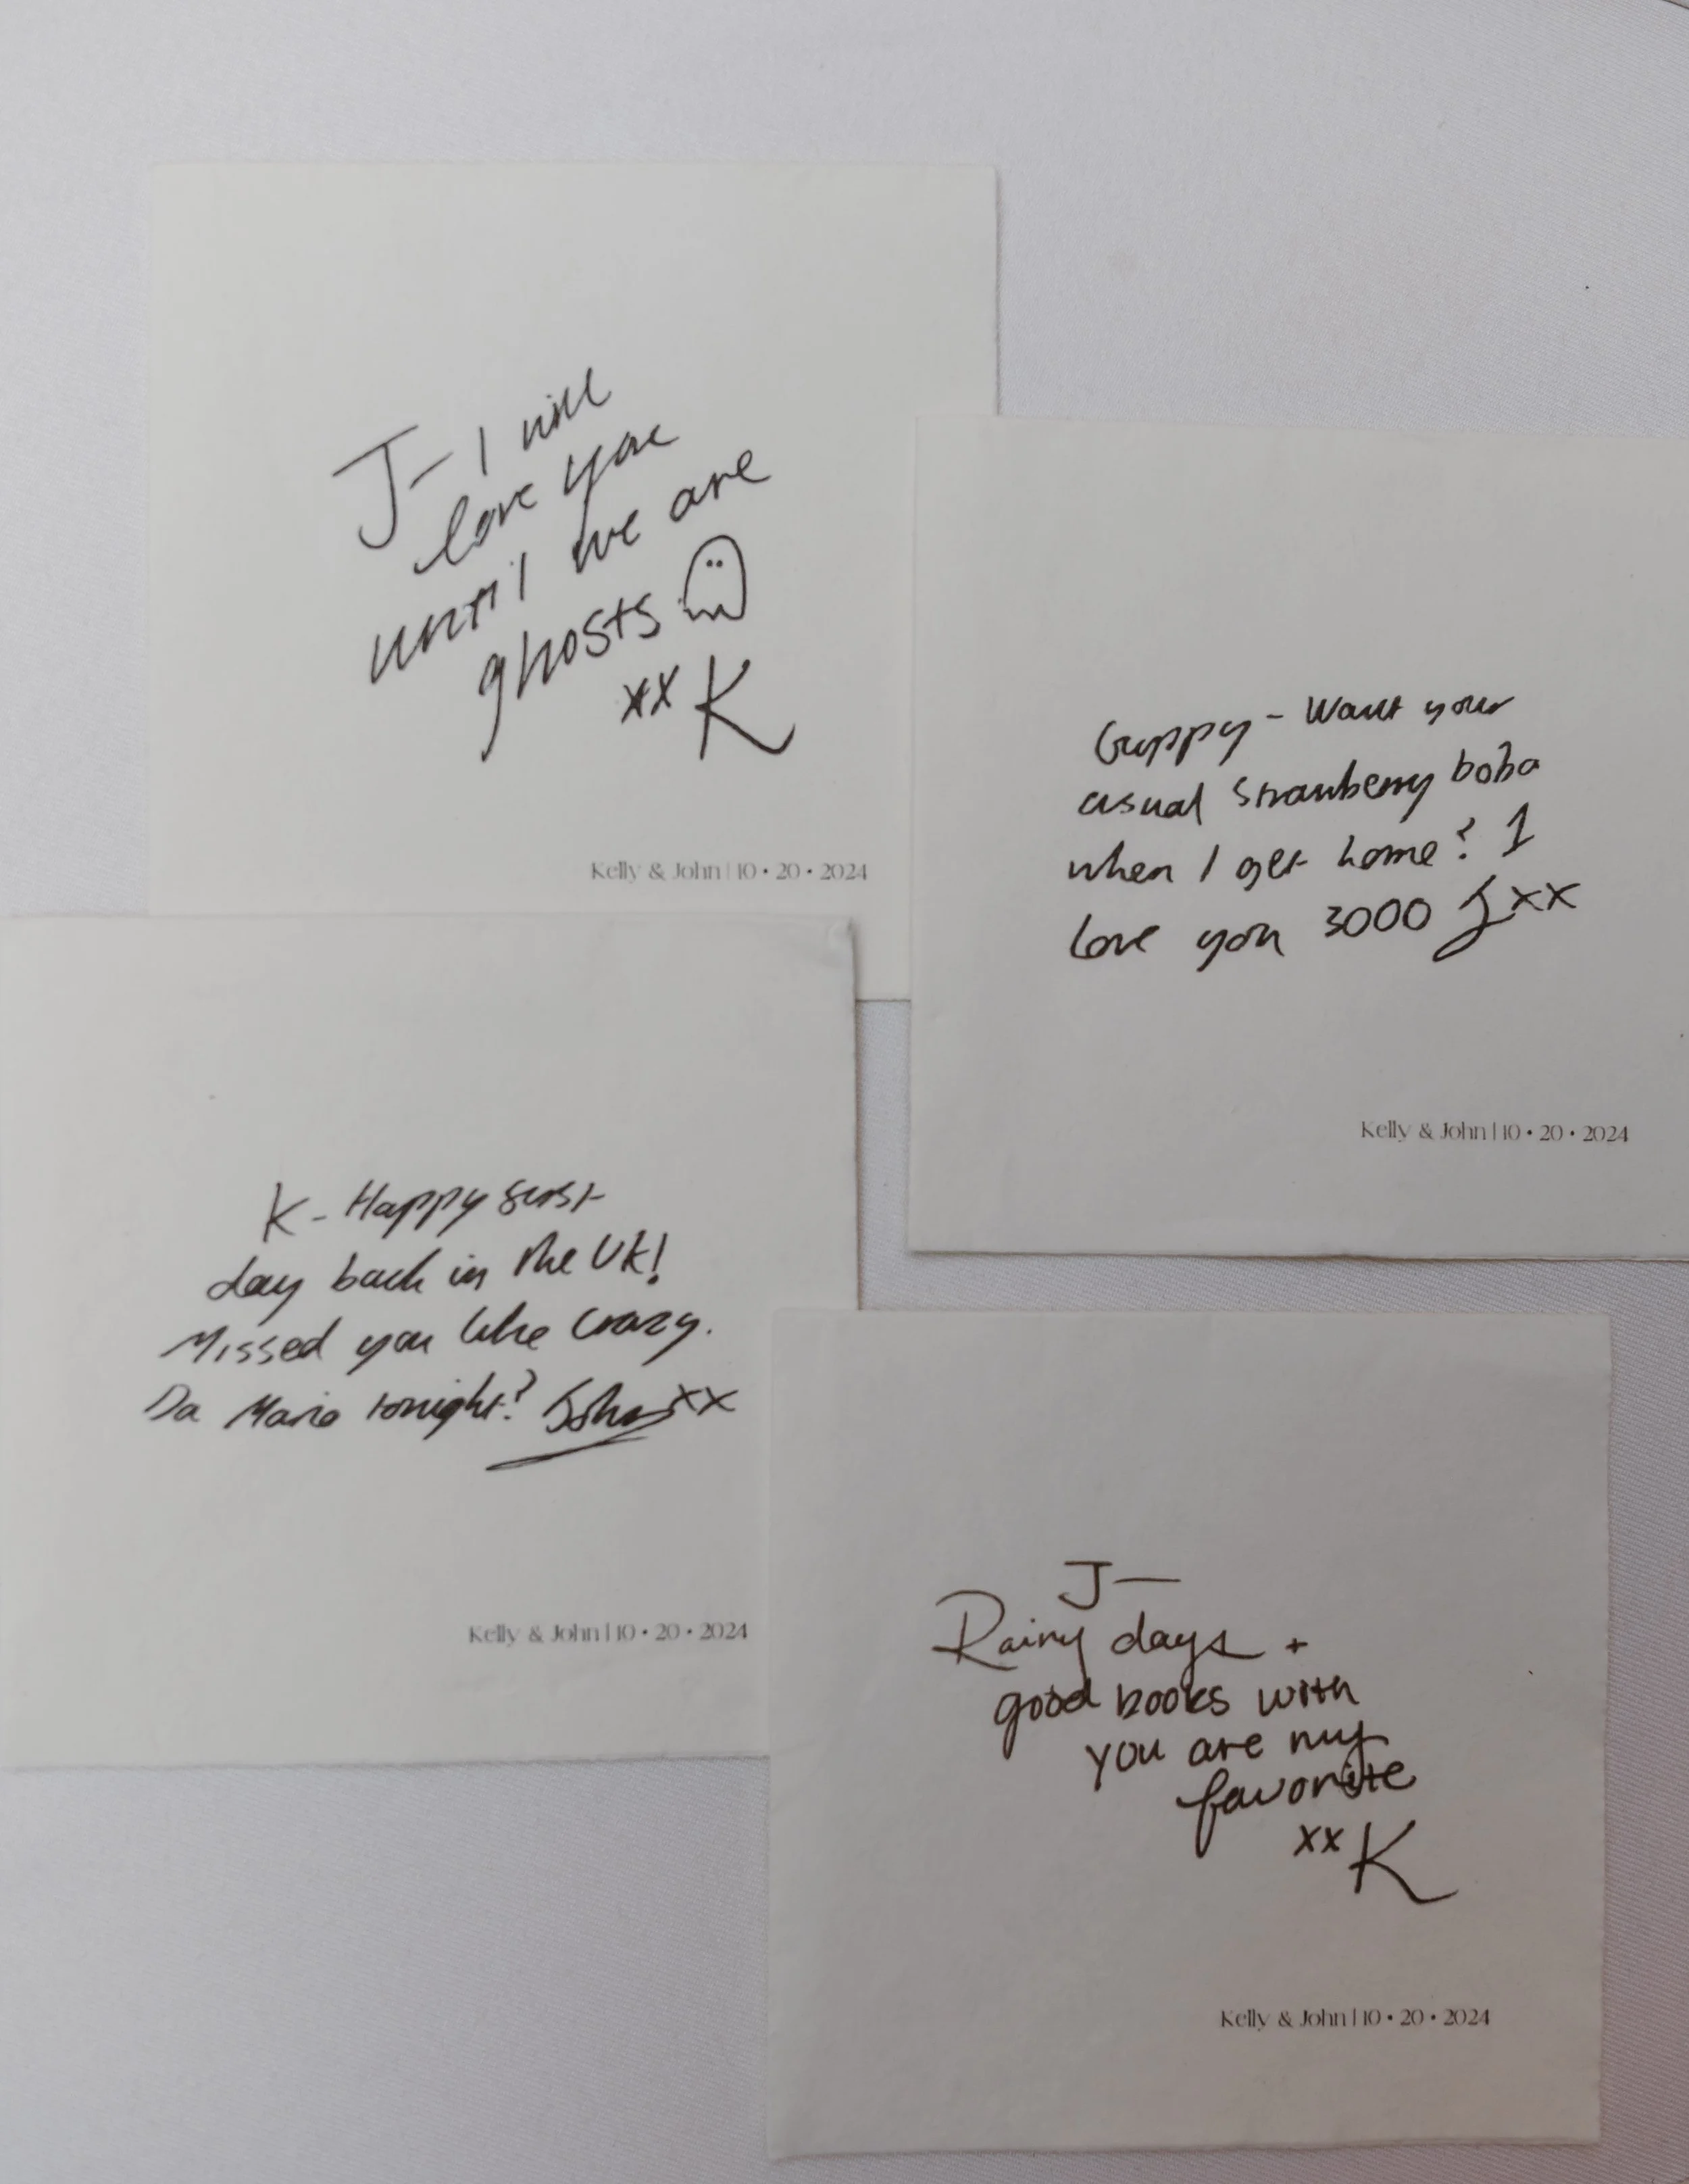 J- I will
love you
until we are
ghosts
xx K
Kelly & John | 10 • 20 • 2024
Guppy - Want your
usual strawberry boba
when I get home? I
love you 3000 J xx
Kelly & John | 10 • 20 • 2024
K - Happy first
day back in the UK!
Missed you like crazy.
Da Mario tonight? John xx
Kelly & John | 10 • 20 • 2024
J—
Rainy days +
good books with
you are my
favorite
xx K
Kelly & John | 10 • 20 • 2024